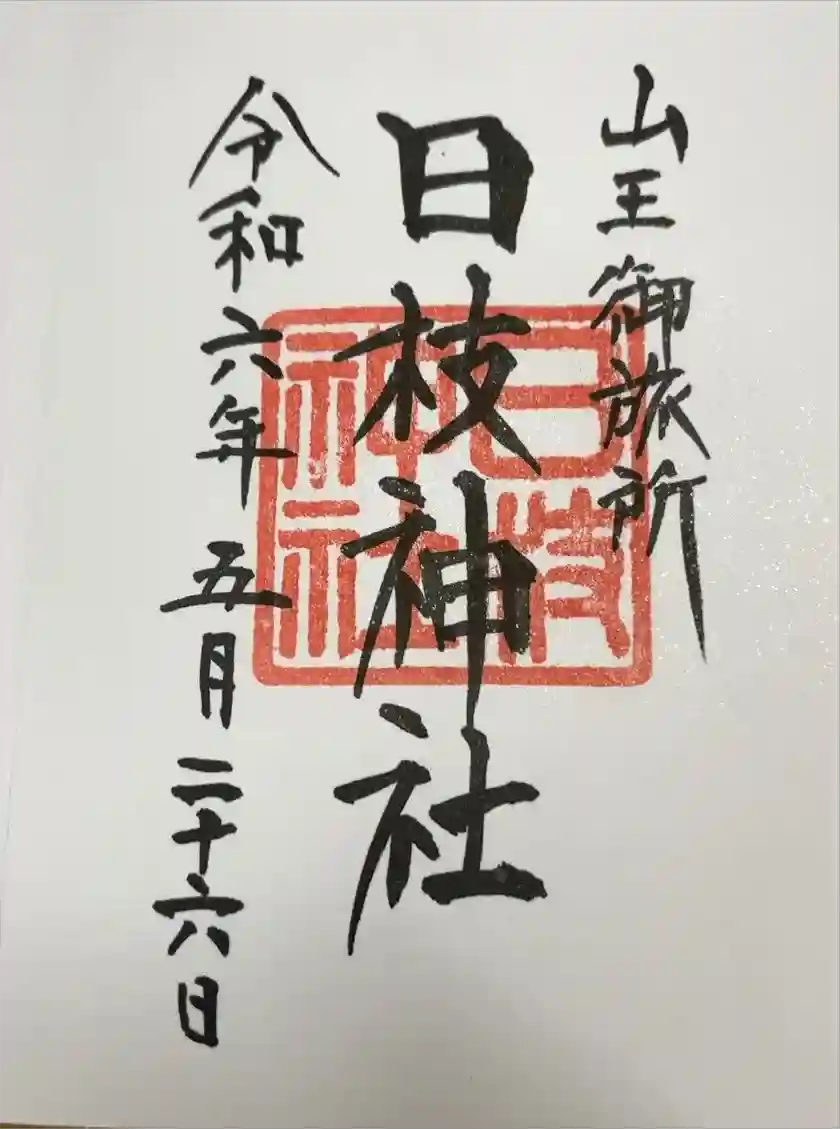 山王御旅所
日枝神社
令和六年 五月二十六日
日枝
神社